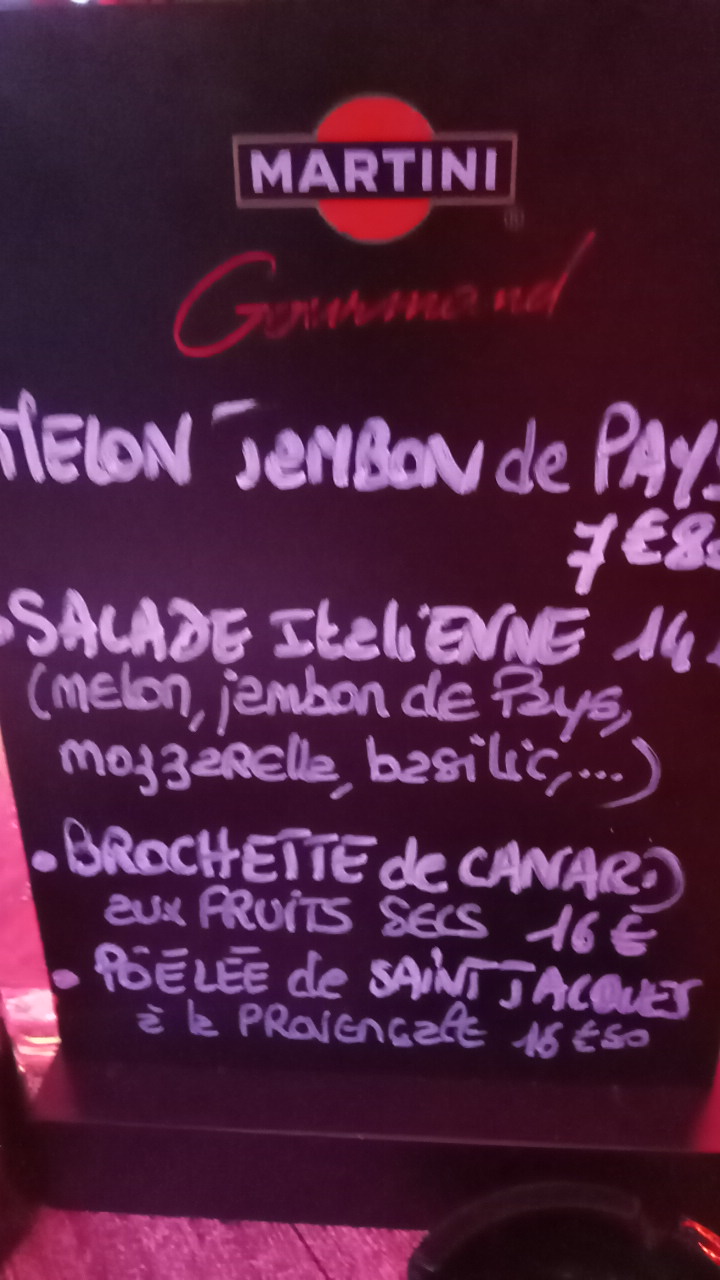 MARTINI
®
Gourmand
MELON JAMBON de PAYS
7€80
• SALADE ItaliENNE 14
(melon, jambon de Pays,
mozzaRella, basilic,...)
• BROCHETTE de CANARD
aux FRUITS SECS 16€
• POÊLÉE de SAINT JACQUES
à la PROVENCALE 16€50